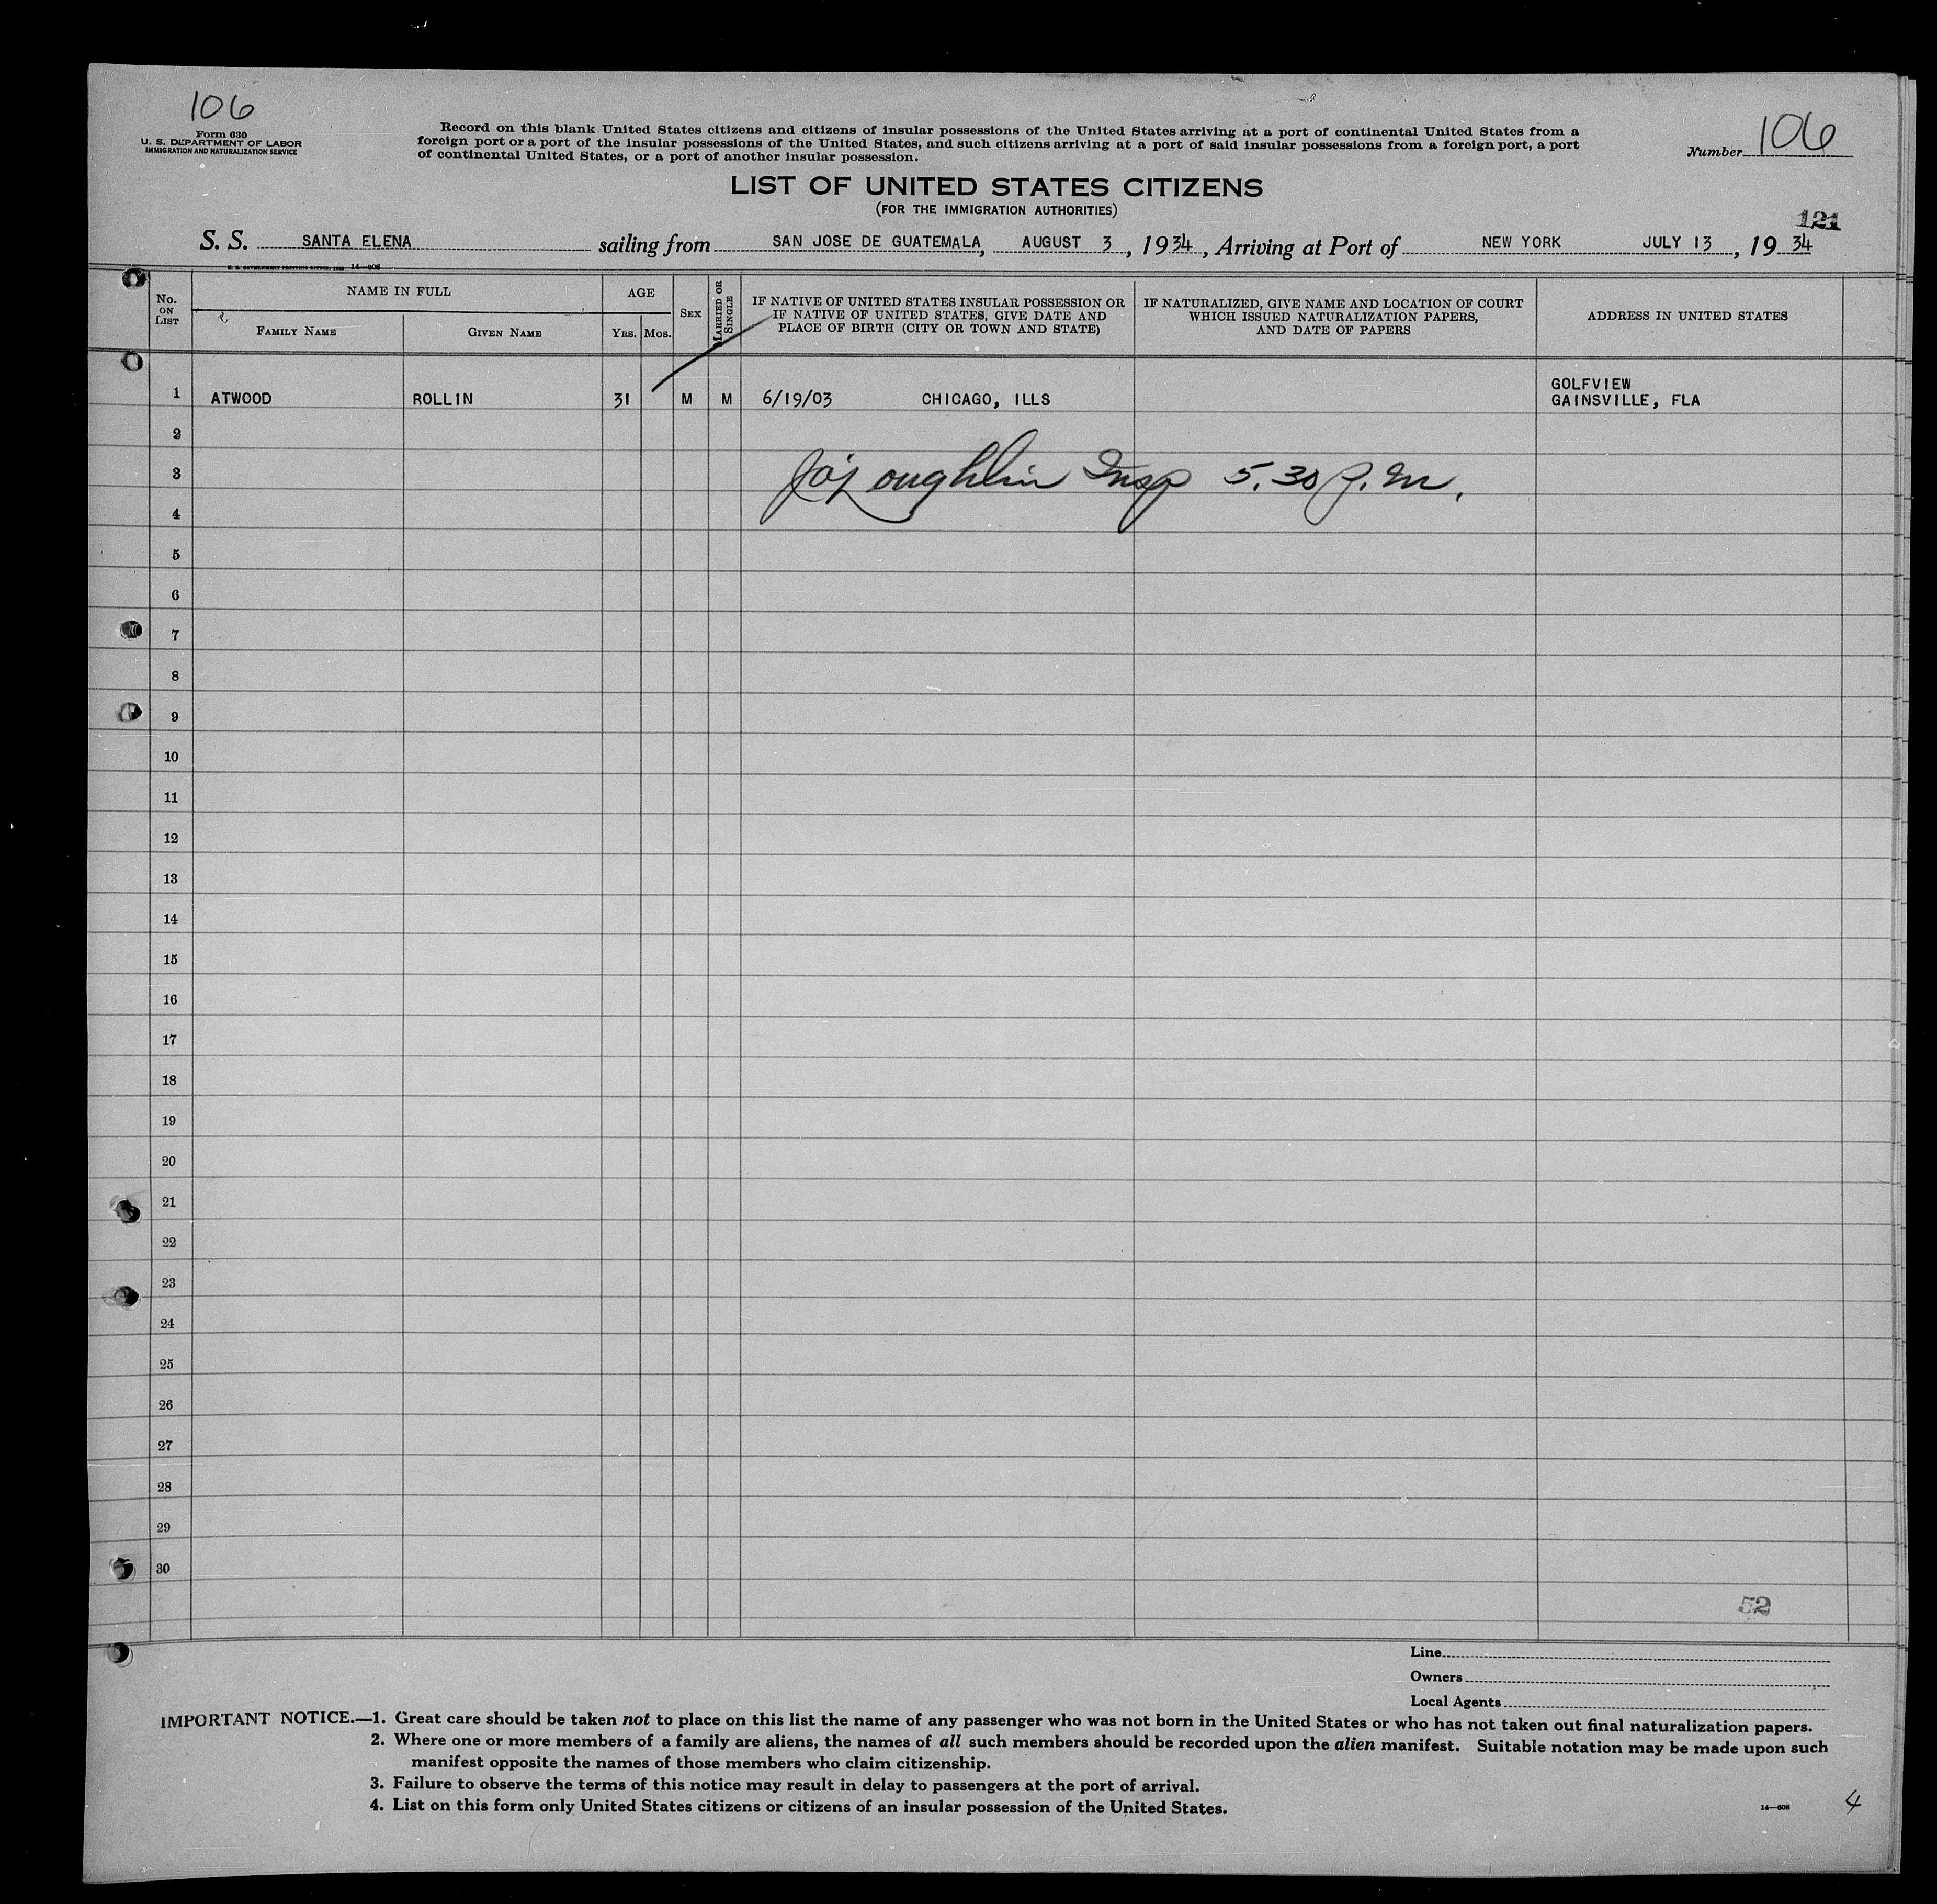 106
Form 630
U. S. DEPARTMENT OF LABOR
IMMIGRATION AND NATURALIZATION SERVICE
Record on this blank United States citizens and citizens of insular possessions of the United States arriving at a port of continental United States from a
foreign port or a port of the insular possessions of the United States, and such citizens arriving at a port of said insular possessions from a foreign port, a port
of continental United States, or a port of another insular possession.
Number 106
LIST OF UNITED STATES CITIZENS
(FOR THE IMMIGRATION AUTHORITIES)
121
S. S. SANTA ELENA sailing from SAN JOSE DE GUATEMALA, AUGUST 3, 1934, Arriving at Port of NEW YORK JULY 13, 1934
14—608
No. ON LIST
NAME IN FULL
FAMILY NAME
GIVEN NAME
AGE
YRS. MOS.
SEX
MARRIED OR SINGLE
IF NATIVE OF UNITED STATES INSULAR POSSESSION OR
IF NATIVE OF UNITED STATES, GIVE DATE AND
PLACE OF BIRTH (CITY OR TOWN AND STATE)
IF NATURALIZED, GIVE NAME AND LOCATION OF COURT
WHICH ISSUED NATURALIZATION PAPERS,
AND DATE OF PAPERS
ADDRESS IN UNITED STATES
GOLFVIEW
1 ATWOOD ROLLIN 31 M M 6/19/03 CHICAGO, ILLS GAINSVILLE, FLA
2
3 Insp 5.30 P.M.
4
5
6
7
8
9
10
11
12
13
14
15
16
17
18
19
20
21
22
23
24
25
26
27
28
29
30
52
Line
Owners
Local Agents
IMPORTANT NOTICE.—1. Great care should be taken not to place on this list the name of any passenger who was not born in the United States or who has not taken out final naturalization papers.
2. Where one or more members of a family are aliens, the names of all such members should be recorded upon the alien manifest. Suitable notation may be made upon such
manifest opposite the names of those members who claim citizenship.
3. Failure to observe the terms of this notice may result in delay to passengers at the port of arrival.
4. List on this form only United States citizens or citizens of an insular possession of the United States.
14—608
4